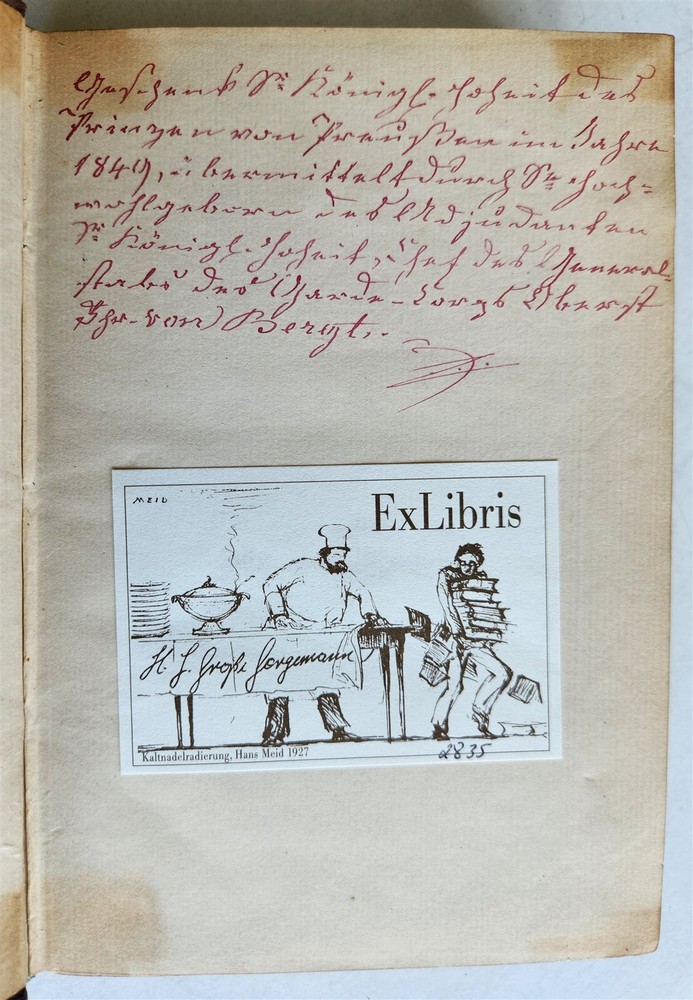 Geschenk Sr. Königl. Hoheit des
Prinzen von Preußen im Jahre
1849, übermittelt durch Se. Hoch=
wohlgeborn des Adjudanten
Sr. Königl. Hoheit, Chef des General=
stabes des Garde-Corps Oberst
Fhr. von
MEID
ExLibris
H. J. Große
Kaltnadelradierung, Hans Meid 1927
2835